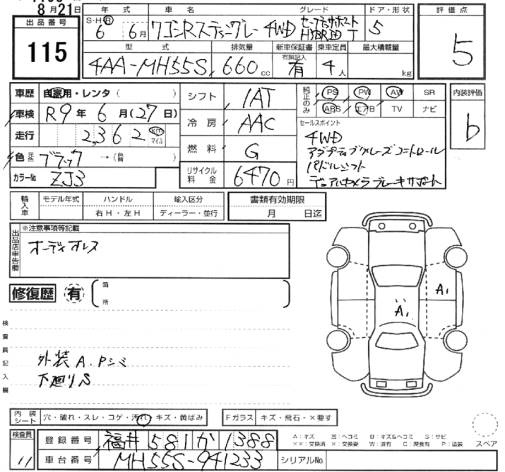 8月21日
出品番号
115
年式 車名 グレード ドア・形状
S・H・R 6年 6月 ワゴンRスティングレー 4WD セーフティサポート HYBRID T 5
型式 排気量 新車保証書 乗車定員 最大積載量
4AA-MH55S 660cc 有 4人 kg
評価点
5
車歴 自家用・レンタ( )
車検 R9年 6月(27日)
走行 2,362 km マイル
色 ブラック →( )
カラーNo ZJ3
シフト IAT
冷房 AAC
燃料 G
リサイクル料金 6470円
純正のみ PS PW AW SR
ABS エアB TV ナビ
セールスポイント
4WD
アダプティブクルーズコントロール
パドルシフト
デュアルカメラブレーキサポート
内装評価
b
輸入車 モデル年式 ハンドル 輸入区分
年 右H・左H ディーラー・並行
書類有効期限
月 日迄
出品店申告欄
※注意事項等記載
オーディオレス
修復歴 有 箇所
検査員記入欄
外装A.Pシミ
下廻りS
A₁
A₁
内装シート 穴・破れ・スレ・コゲ・汚れ・キズ・黄ばみ
Fガラス キズ・飛石・×要す
検査員
11
登録番号 福井 581 か 1388
車台番号 MH55S-941233
シリアルNo
A:キズ U:ヘコミ B:キズ&ヘコミ S:サビ
スペア